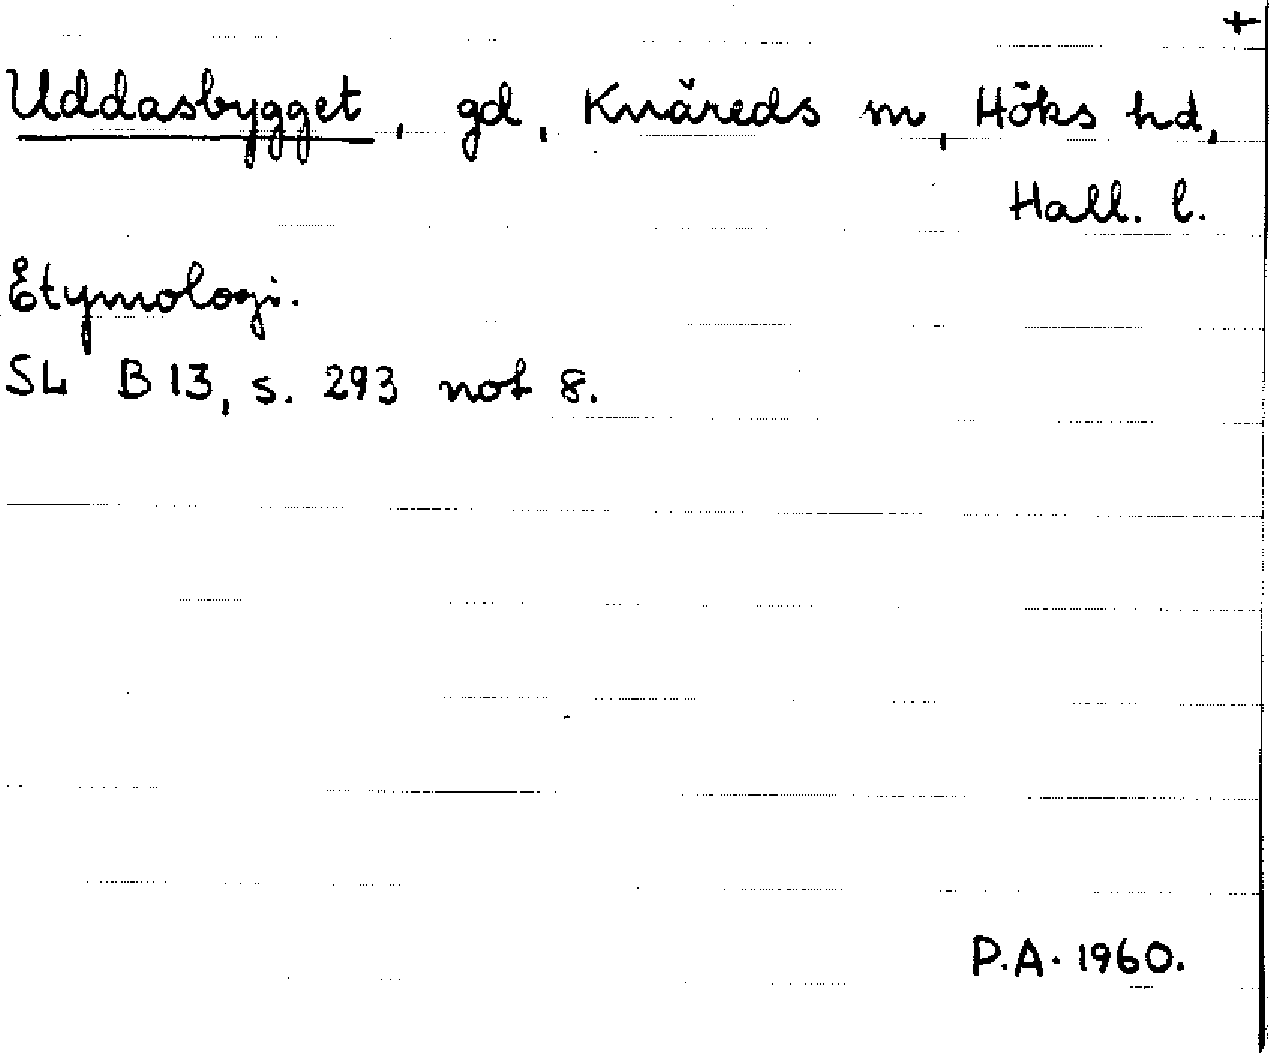 +
Uddasbygget, gd, Knäreds sn, Höks hd,
Hall. l.
Etymologi.
SL B 13, s. 293 not 8.
P.A. 1960.